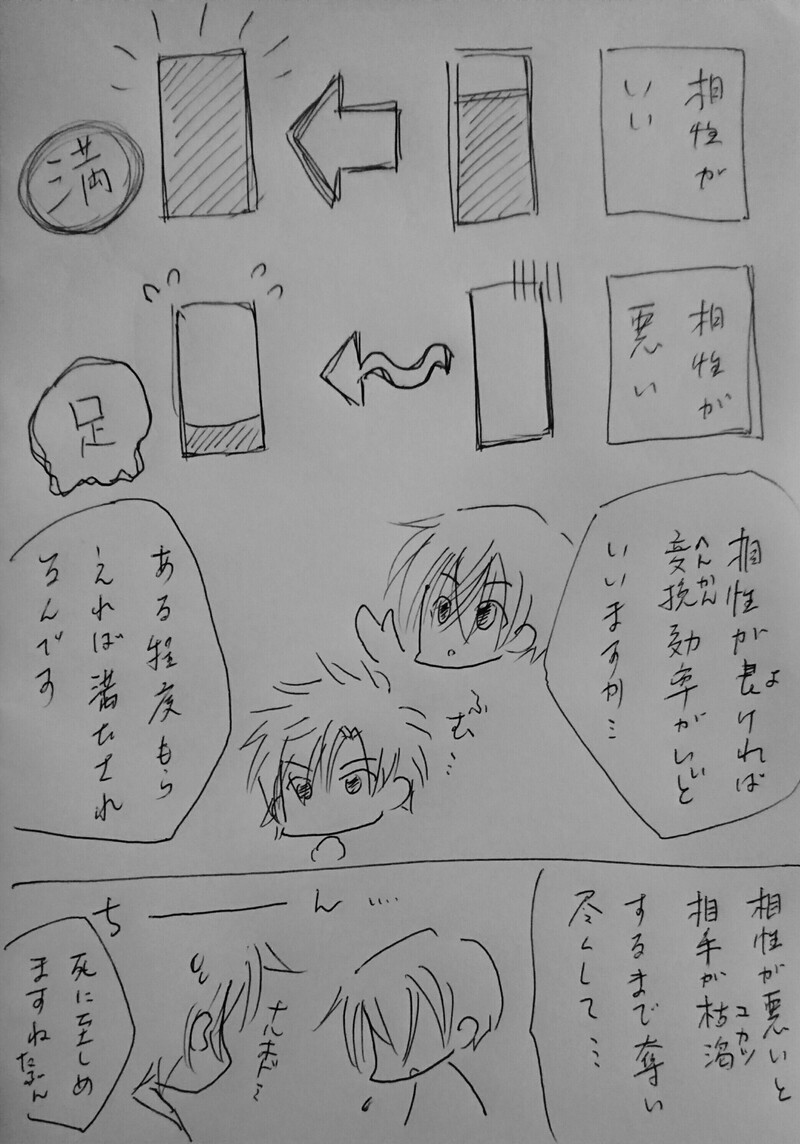 相性が
いい
満
相性が
悪い
足
相性が良ければ
変換効率がいいと
いいますか…
ふむ…
ある程度もら
えれば満たされ
るんです
相性が悪いと
相手が枯渇
するまで奪い
尽くして…
ち――――ん….
ナルホド…
死に至しめ
ますねたぶん